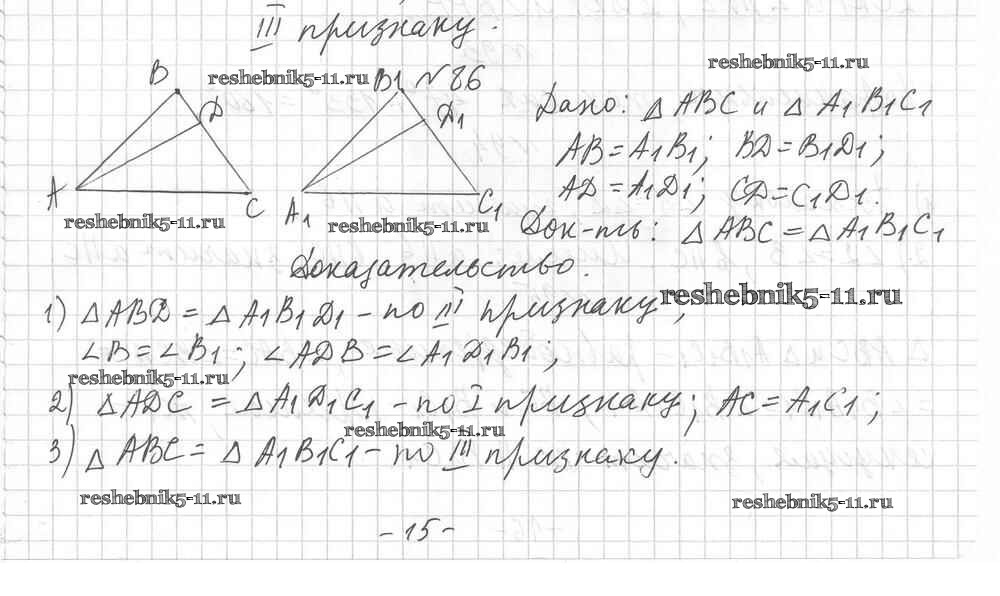 III признаку.
reshebnik5-11.ru
reshebnik5-11.ru
B
D
A
C
B1
№ 86
D1
A1
C1
reshebnik5-11.ru
reshebnik5-11.ru
Дано: △ ABC и △ A1 B1 C1
AB = A1B1; BD = B1D1;
AD = A1D1; CD = C1D1.
Док-ть: △ ABC = △ A1 B1 C1
Доказательство.
reshebnik5-11.ru
1) △ ABD = △ A1 B1 D1 - по III признаку;
∠B = ∠B1; ∠ADB = ∠A1 D1 B1;
reshebnik5-11.ru
2) △ ADC = △ A1 D1 C1 - по I признаку; AC = A1C1;
reshebnik5-11.ru
3) △ ABC = △ A1 B1 C1 - по III признаку.
reshebnik5-11.ru
reshebnik5-11.ru
- 15 -